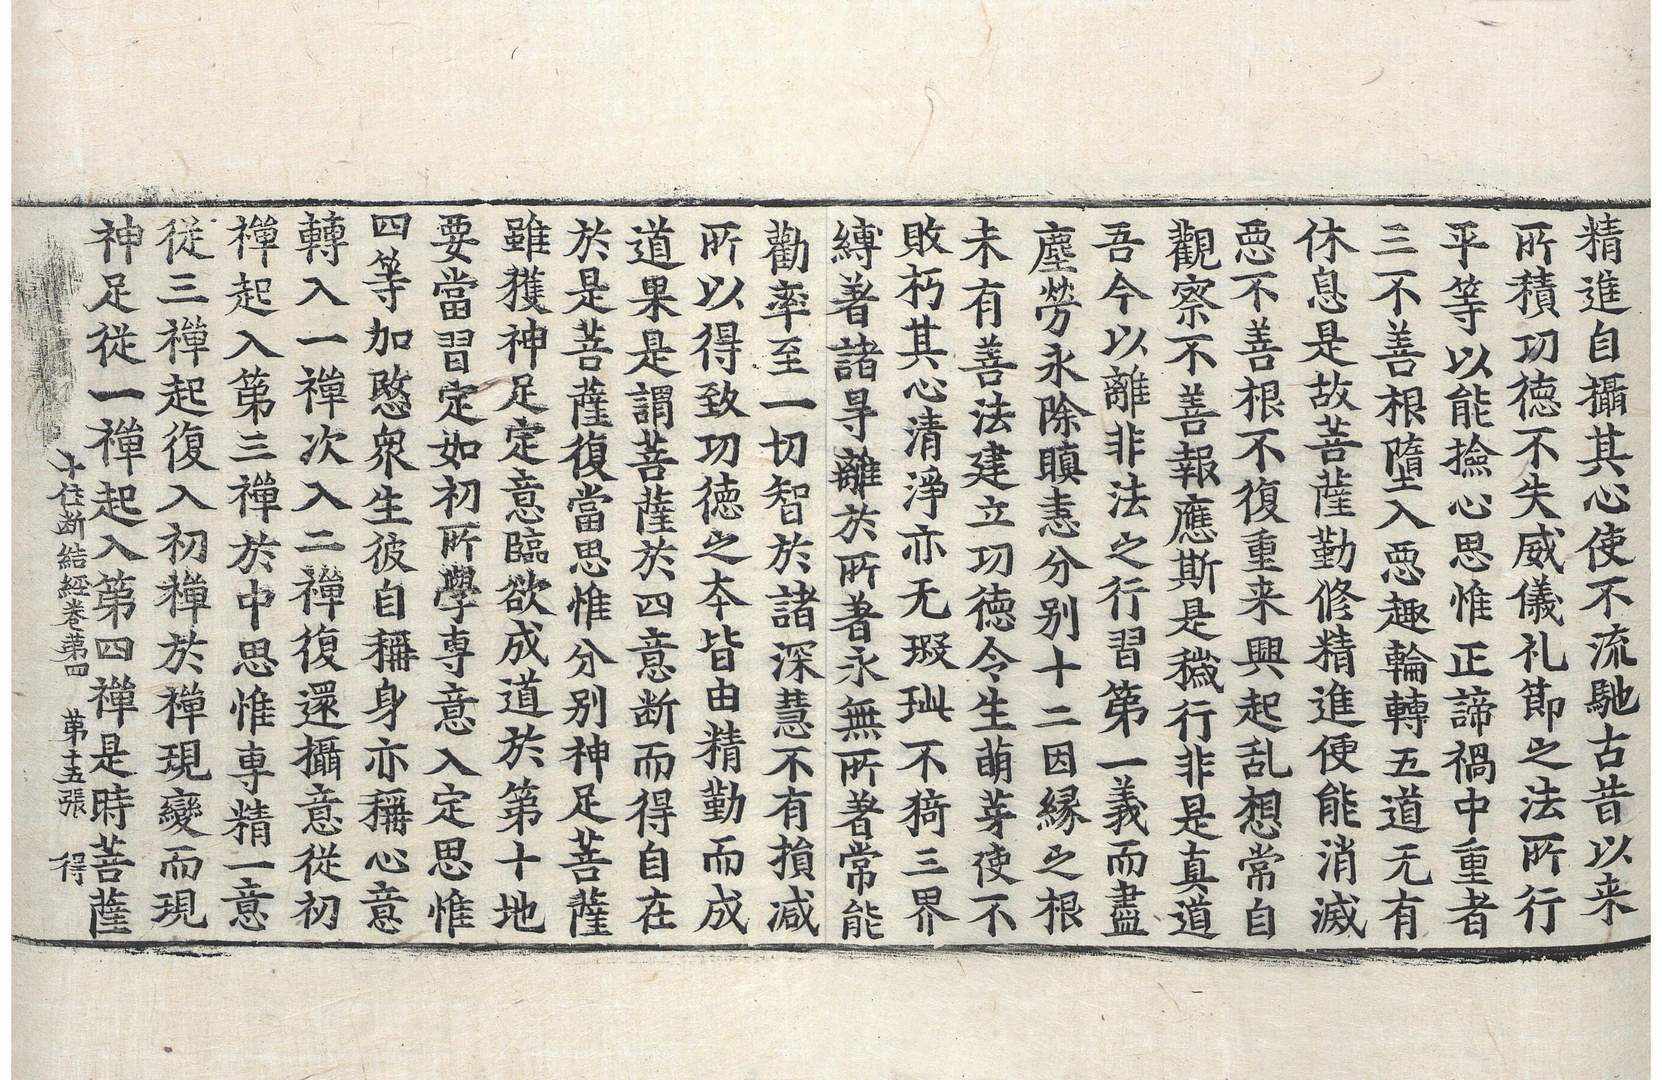 精進自攝其心使不流馳古昔以来
所積功德不失威儀礼節之法所行
平等以能撿心思惟正諦禍中重者
三不善根墮入惡趣輪轉五道无有
休息是故菩薩勤修精進便能消滅
惡不善根不復重来興起乱想常自
觀察不善報應斯是穢行非是真道
吾今以離非法之行習第一義而盡
塵勞永除瞋恚分別十二因緣之根
未有善法建立功德令生萌芽使不
敗朽其心清淨亦无瑕玼不猗三界
縛著諸㝵離於所著永無所著常能
勸率至一切智於諸深慧不有損减
所以得致功德之本皆由精勤而成
道果是謂菩薩於四意断而得自在
於是菩薩復當思惟分別神足菩薩
雖獲神足定意臨欲成道於第十地
要當習定如初所學專意入定思惟
四等加愍衆生彼自稱身亦稱心意
轉入一禪次入二禪復還攝意從初
禪起入第三禪於中思惟專精一意
從三禪起復入初禪於禪現變而現
神足從一禪起入第四禪是時菩薩
十住断結經卷第四 第十五張 得